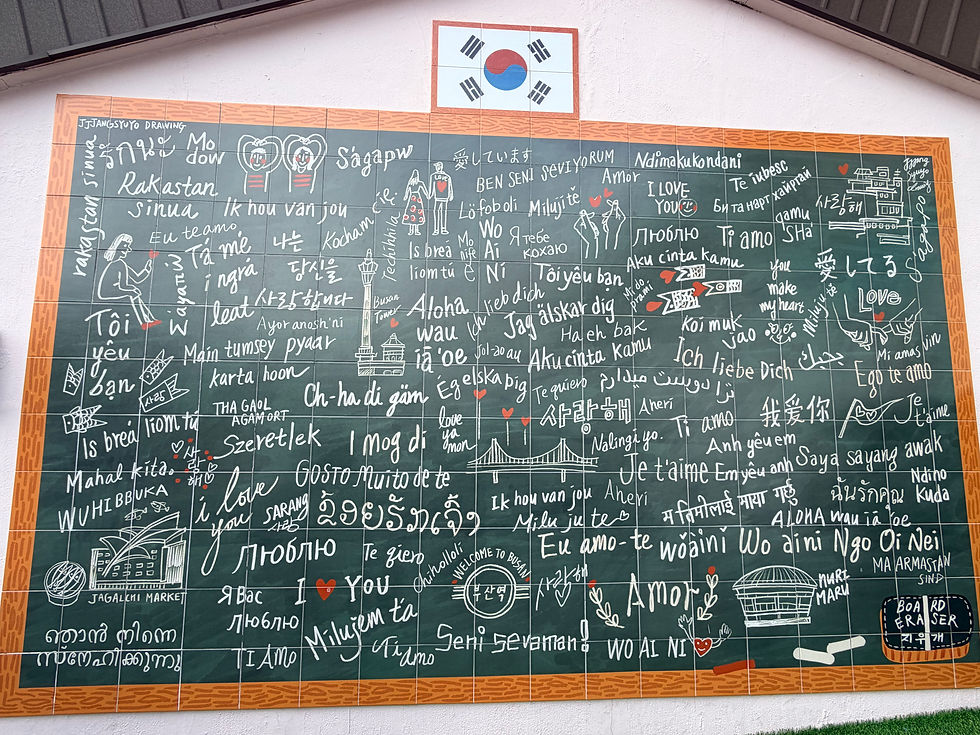 JJJANGSYUYO DRAWING
รักนะ
Mo dow
rakastan sinua
Rakastan
sinua
Eu te amo
Ságapw
Ik hou van jou
愛しています
BEN SENI SEVIYORUM
Amor
Ndimakukondani
I LOVE
YOU
Te iubesc
Би та нарт хайртай
사랑해
Sagapo
LOVE
Lö fob oli
Miluji tě
Wo
Ai
Ni
Я тебе
кохаю
Люблю
Ti amo
qamu
SHa
Kocham Cię
Techihhila
Is breá
liom tú
Mo
life
é
Tá mé
i ngrá
leat
나는
당신을
사랑합니다
Σ'αγαπώ
Tôi yêu bạn
Aku cinta kamu
you
make
my heart
愛
してる
LOVE
Tôi
yêu
bạn
Ayor anosh'ni
Main tumsey pyaar
karta hoon
Busan
Tower
Aloha
wau
iā 'oe
Ich lieb dich
Jag älskar dig
Ha eh bak
Jol-ao au
Aku cinta kamu
Koi muk
Jao
Miluju tě
Ich liebe Dich
بحبك
Mi amas vin
Ego te amo
사랑
Is breá liom tú
THA GAOL
AGAM ORT
Oh-ha di gäm
Eg elska þig
Te quiero
ترا دوست میدارم
Szeretlek
I mog di
love
ya
man
사랑해
Aheri
Ti amo
我爱你
Je
t'aime
Mahal kita
사랑해
WUHIBBUKA
i love
you
GOSTO Muito de te
Nalingi yo.
Anh yêu em
Je t'aime
Em yêu anh
Saya sayang awak
SARANG
사랑
ຂ້ອຍຮັກເຈົ້າ
Ik hou van jou
Miluju te
Aheri
म तिमीलाई माया गर्छु
ฉันรักคุณ
Ndino
Kuda
ALOHA wau iā 'oe
Люблю
Te qiero
Chiholloli
WELCOME TO BUSAN
부산역
사랑해
Eu amo-te
wǒàinǐ
Wo ai ni
Ngo Oi Nei
MA ARMASTAN
SIND
JAGALCHI MARKET
Я Вас
Люблю
I
YOU
Amor
NURI
MARU
BOARD
ERASER
지우개
ഞാൻ നിന്നെ
സ്നേഹിക്കുന്നു
TI AMO
Milujem ťa
Ti amo
Seni sevaman!
WO AI NI